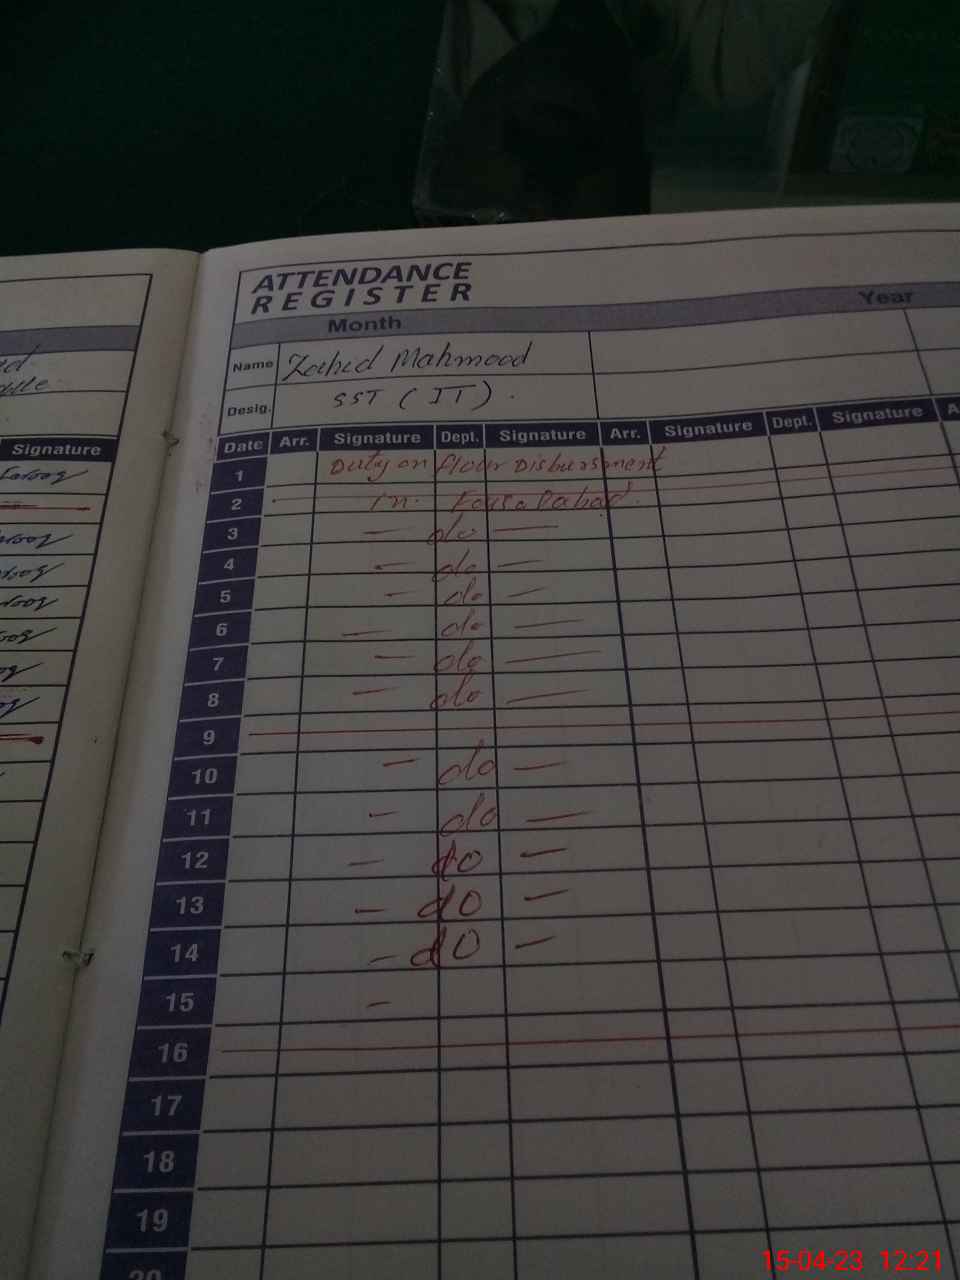 ATTENDANCE
REGISTER
Month Year
Name Zahid Mahmood
Desig. SST (IT).
Signature
Date Arr. Signature Dept. Signature Arr. Signature Dept. Signature A
1 Duty on flour Disbursment
2 in
3 — do —
4 — do —
5 — do —
6 — do —
7 — do —
8 — do —
9
10 — do —
11 — do —
12 — do —
13 — do —
14 — do —
15 —
16
17
18
19
20
15-04-23 12:21